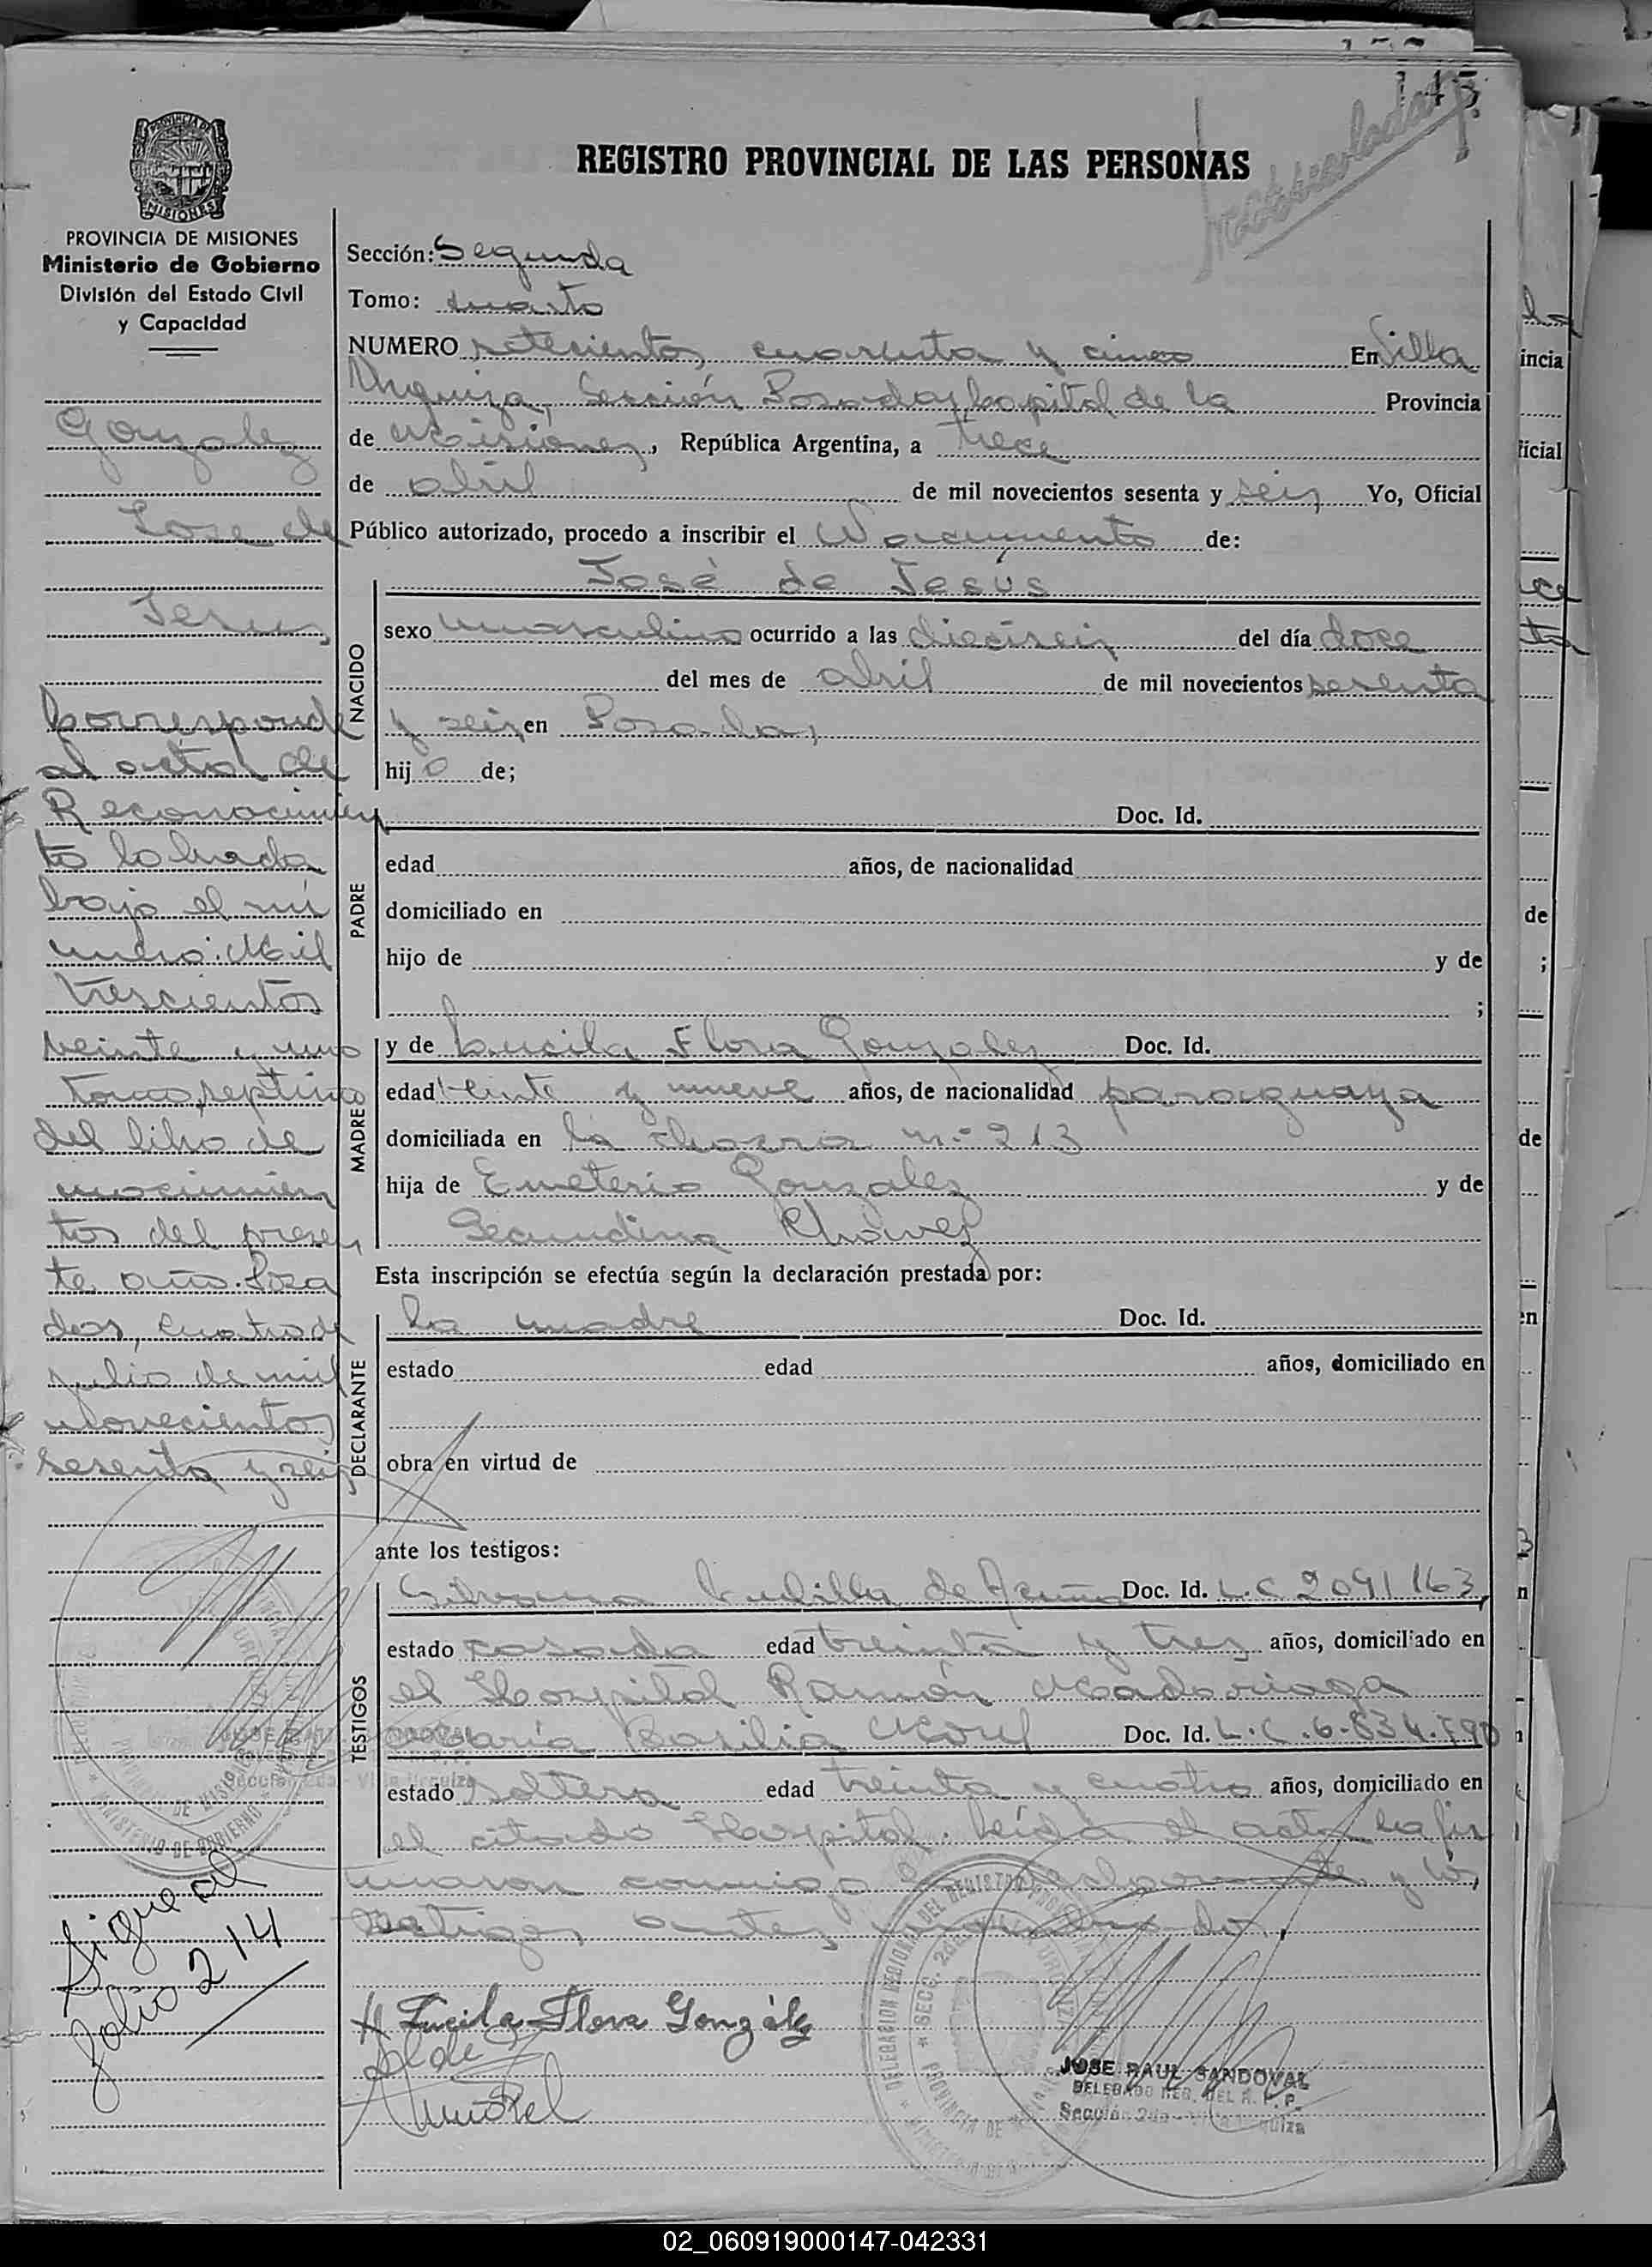 145
Matriculada
REGISTRO PROVINCIAL DE LAS PERSONAS
PROVINCIA DE MISIONES
PROVINCIA DE MISIONES
Ministerio de Gobierno
División del Estado Civil
y Capacidad
Gonzalez
Jose de
Jesus
Corresponde
al acta de
Reconocimien
to labrada
bajo el nú
mero: Mil
trescientos
veinte y uno
tomo septimo
del libro de
nacimien
tos del presen
te año. Posa
das, cuatro de
julio de mil
novecientos
sesenta y seis
Sigue al
folio 214
Sección: Segunda
Tomo: cuarto
NUMERO setecientos cuarenta y cinco En Villa
Urquiza, Sección Posadas, Capital de la Provincia
de Misiones, República Argentina, a trece
de abril de mil novecientos sesenta y seis Yo, Oficial
Público autorizado, procedo a inscribir el Nacimiento de:
NACIDO
José de Jesús
sexo masculino ocurrido a las dieciseis del día doce
del mes de abril de mil novecientos sesenta
y seis en Posadas,
hijo de;
PADRE
Doc. Id.
edad años, de nacionalidad
domiciliado en
hijo de y de
;
MADRE
y de Lucila Flora Gonzalez Doc. Id.
edad veinte y nueve años, de nacionalidad paraguaya
domiciliada en la chacra n.º 213
hija de Emeterio Gonzalez y de
Secundina Chávez
Esta inscripción se efectúa según la declaración prestada por:
DECLARANTE
la madre Doc. Id.
estado edad años, domiciliado en
obra en virtud de
ante los testigos:
TESTIGOS
de Acuña Doc. Id. L.C 2091163,
estado casada edad treinta y tres años, domiciliado en
el Hospital Ramón Madariaga
María Basilia Doc. Id. L.C.6.834.790
estado soltera edad treinta y cuatro años, domiciliado en
el citado Hospital. Leída el acta la fir
maron conmigo y los
testigos antes
Lucila Flora González
JOSE RAUL SANDOVAL
DELEGADO REG. DEL R. P. P.
Sección 2da - Villa Urquiza
02_060919000147-042331